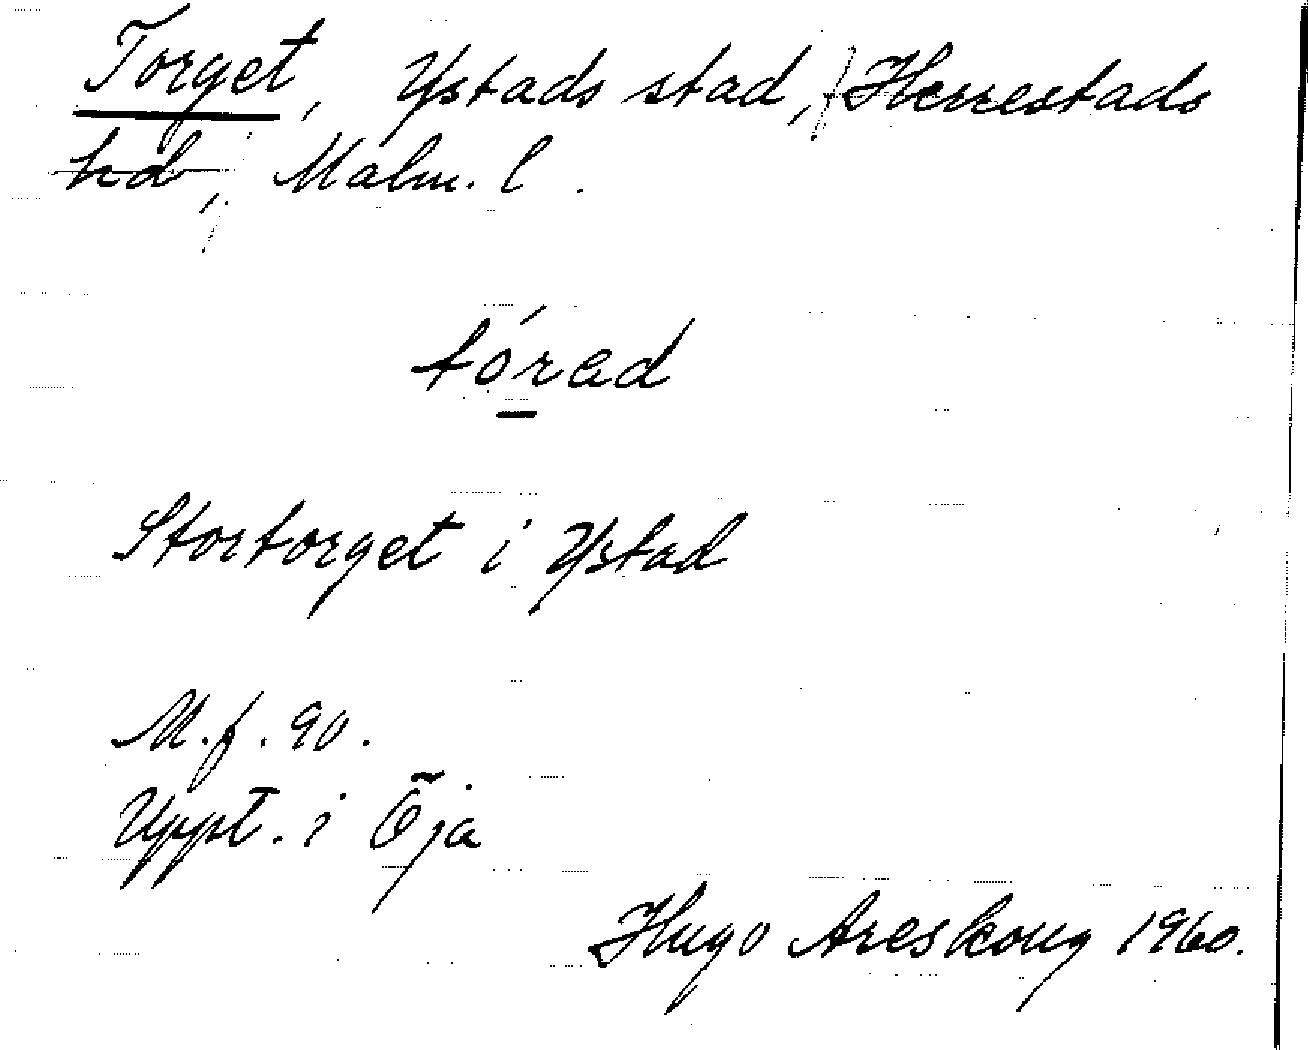 Torget, Ystads stad, Herrestads
hd, Malm. l.
tórad
Stortorget i Ystad
M.f. 90.
Uppt. i Öja
Hugo Areskoug 1960.